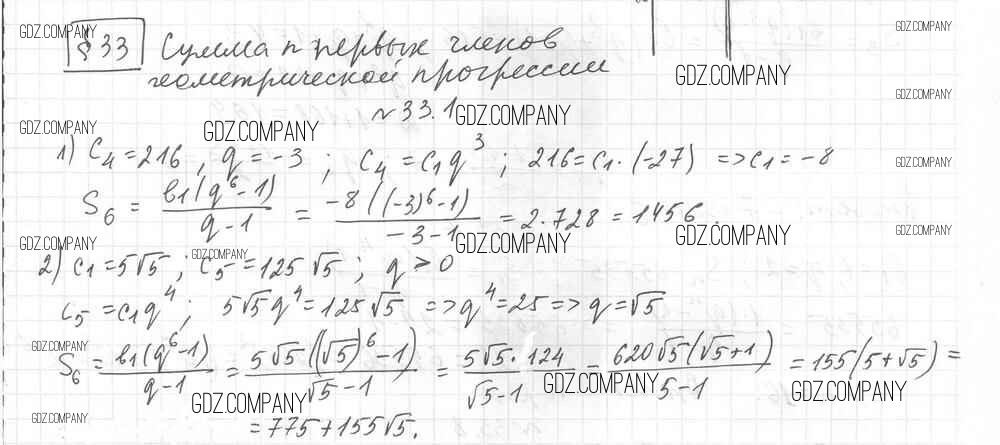 GDZ.COMPANY
GDZ.COMPANY
§ 33 Сумма n первых членов
геометрической прогрессии
GDZ.COMPANY
GDZ.COMPANY
№ 33.1 GDZ.COMPANY
GDZ.COMPANY GDZ.COMPANY
1) C₄=216 , q=-3 ; C₄=C₁q³ ; 216=C₁·(-27) =>C₁=-8
GDZ.COMPANY
S₆ = b₁(q⁶-1)/(q-1) = -8((-3)⁶-1)/(-3-1) = 2·728 = 1456.
GDZ.COMPANY GDZ.COMPANY GDZ.COMPANY GDZ.COMPANY
GDZ.COMPANY
2) C₁=5√5 ; C₅=125√5 ; q>0
C₅=C₁q⁴ ; 5√5q⁴=125√5 =>q⁴=25=>q=√5
GDZ.COMPANY
S₆ = b₁(q⁶-1)/(q-1) = 5√5((√5)⁶-1)/(√5-1) = 5√5·124/(√5-1) = 620√5(√5+1)/(5-1) = 155(5+√5) =
GDZ.COMPANY GDZ.COMPANY GDZ.COMPANY
GDZ.COMPANY
= 775+155√5.